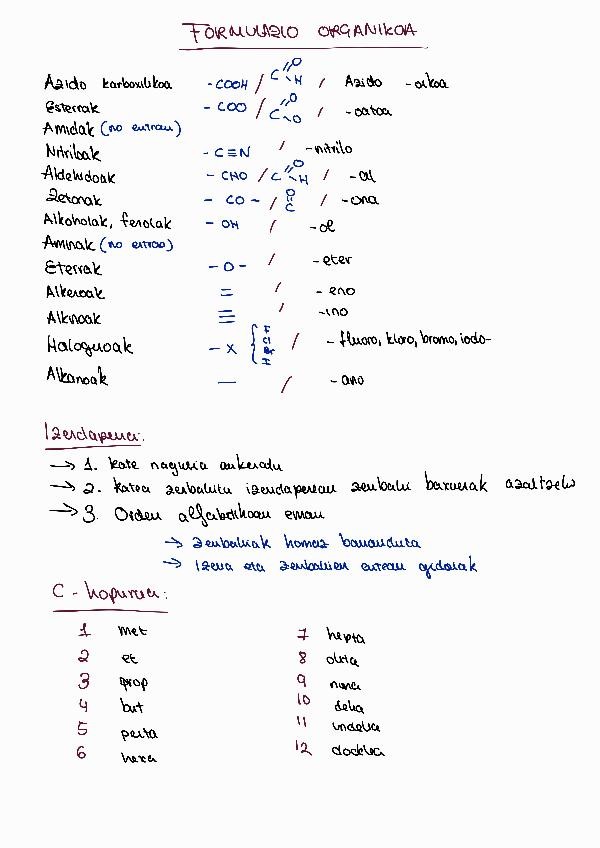 FORMULAZIO ORGANIKOA
Azido karboxilikoa -COOH / C =O -H / Azido -oikoa
Esterrak -COO / C =O O / -oatoa
Amidak (no entran)
Nitriloak -C≡N / -nitrilo
Aldehidoak -CHO / C =O H / -al
Zetonak -CO- / O = C / -ona
Alkoholak, fenolak -OH / -ol
Aminak (no entran)
Eterrak -O- / -eter
Alkenoak = / -eno
Alkinoak ≡ / -ino
Halogenoak -X { F Cl Br I / -fluoro, kloro, bromo, iodo-
Alkanoak — / -ano
Izendapena:
→ 1. kate nagusia aukeratu
→ 2. katea zenbatu izendapenean zenbaki baxuenak azaltzeko
→ 3. Orden alfabetikoan eman
→ zenbakiak komaz bananduta
→ Izena eta zenbakien artean gidoiak
C - kopurua:
1 met
2 et
3 prop
4 but
5 penta
6 hexa
7 hepta
8 okta
9 nona
10 deka
11 undeka
12 dodeka